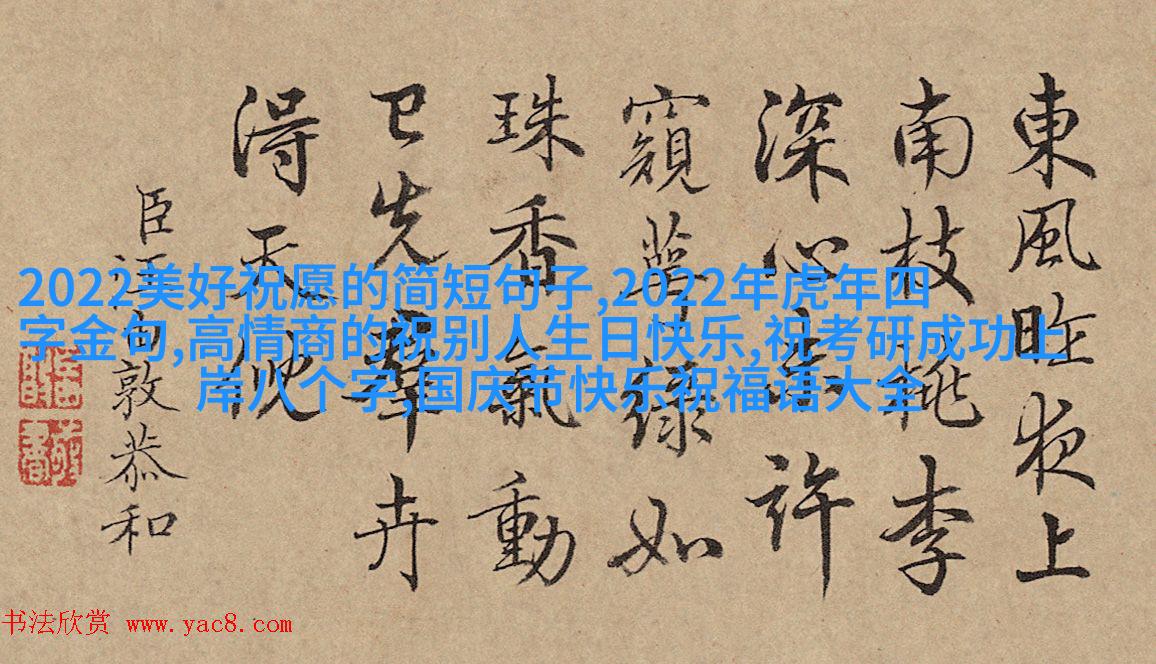 東風昨夜上
南枝桃李
深心許
窺萼綠如
珠香氣動
已先羣卉
得天倪
臣汪由敦恭和
2022美好祝愿的简短句子,2022年虎年四
字金句,高情商的祝别人生日快乐,祝考研成功上
岸八个字,国庆节快乐祝福语大全
书法欣赏 www.yac8.com